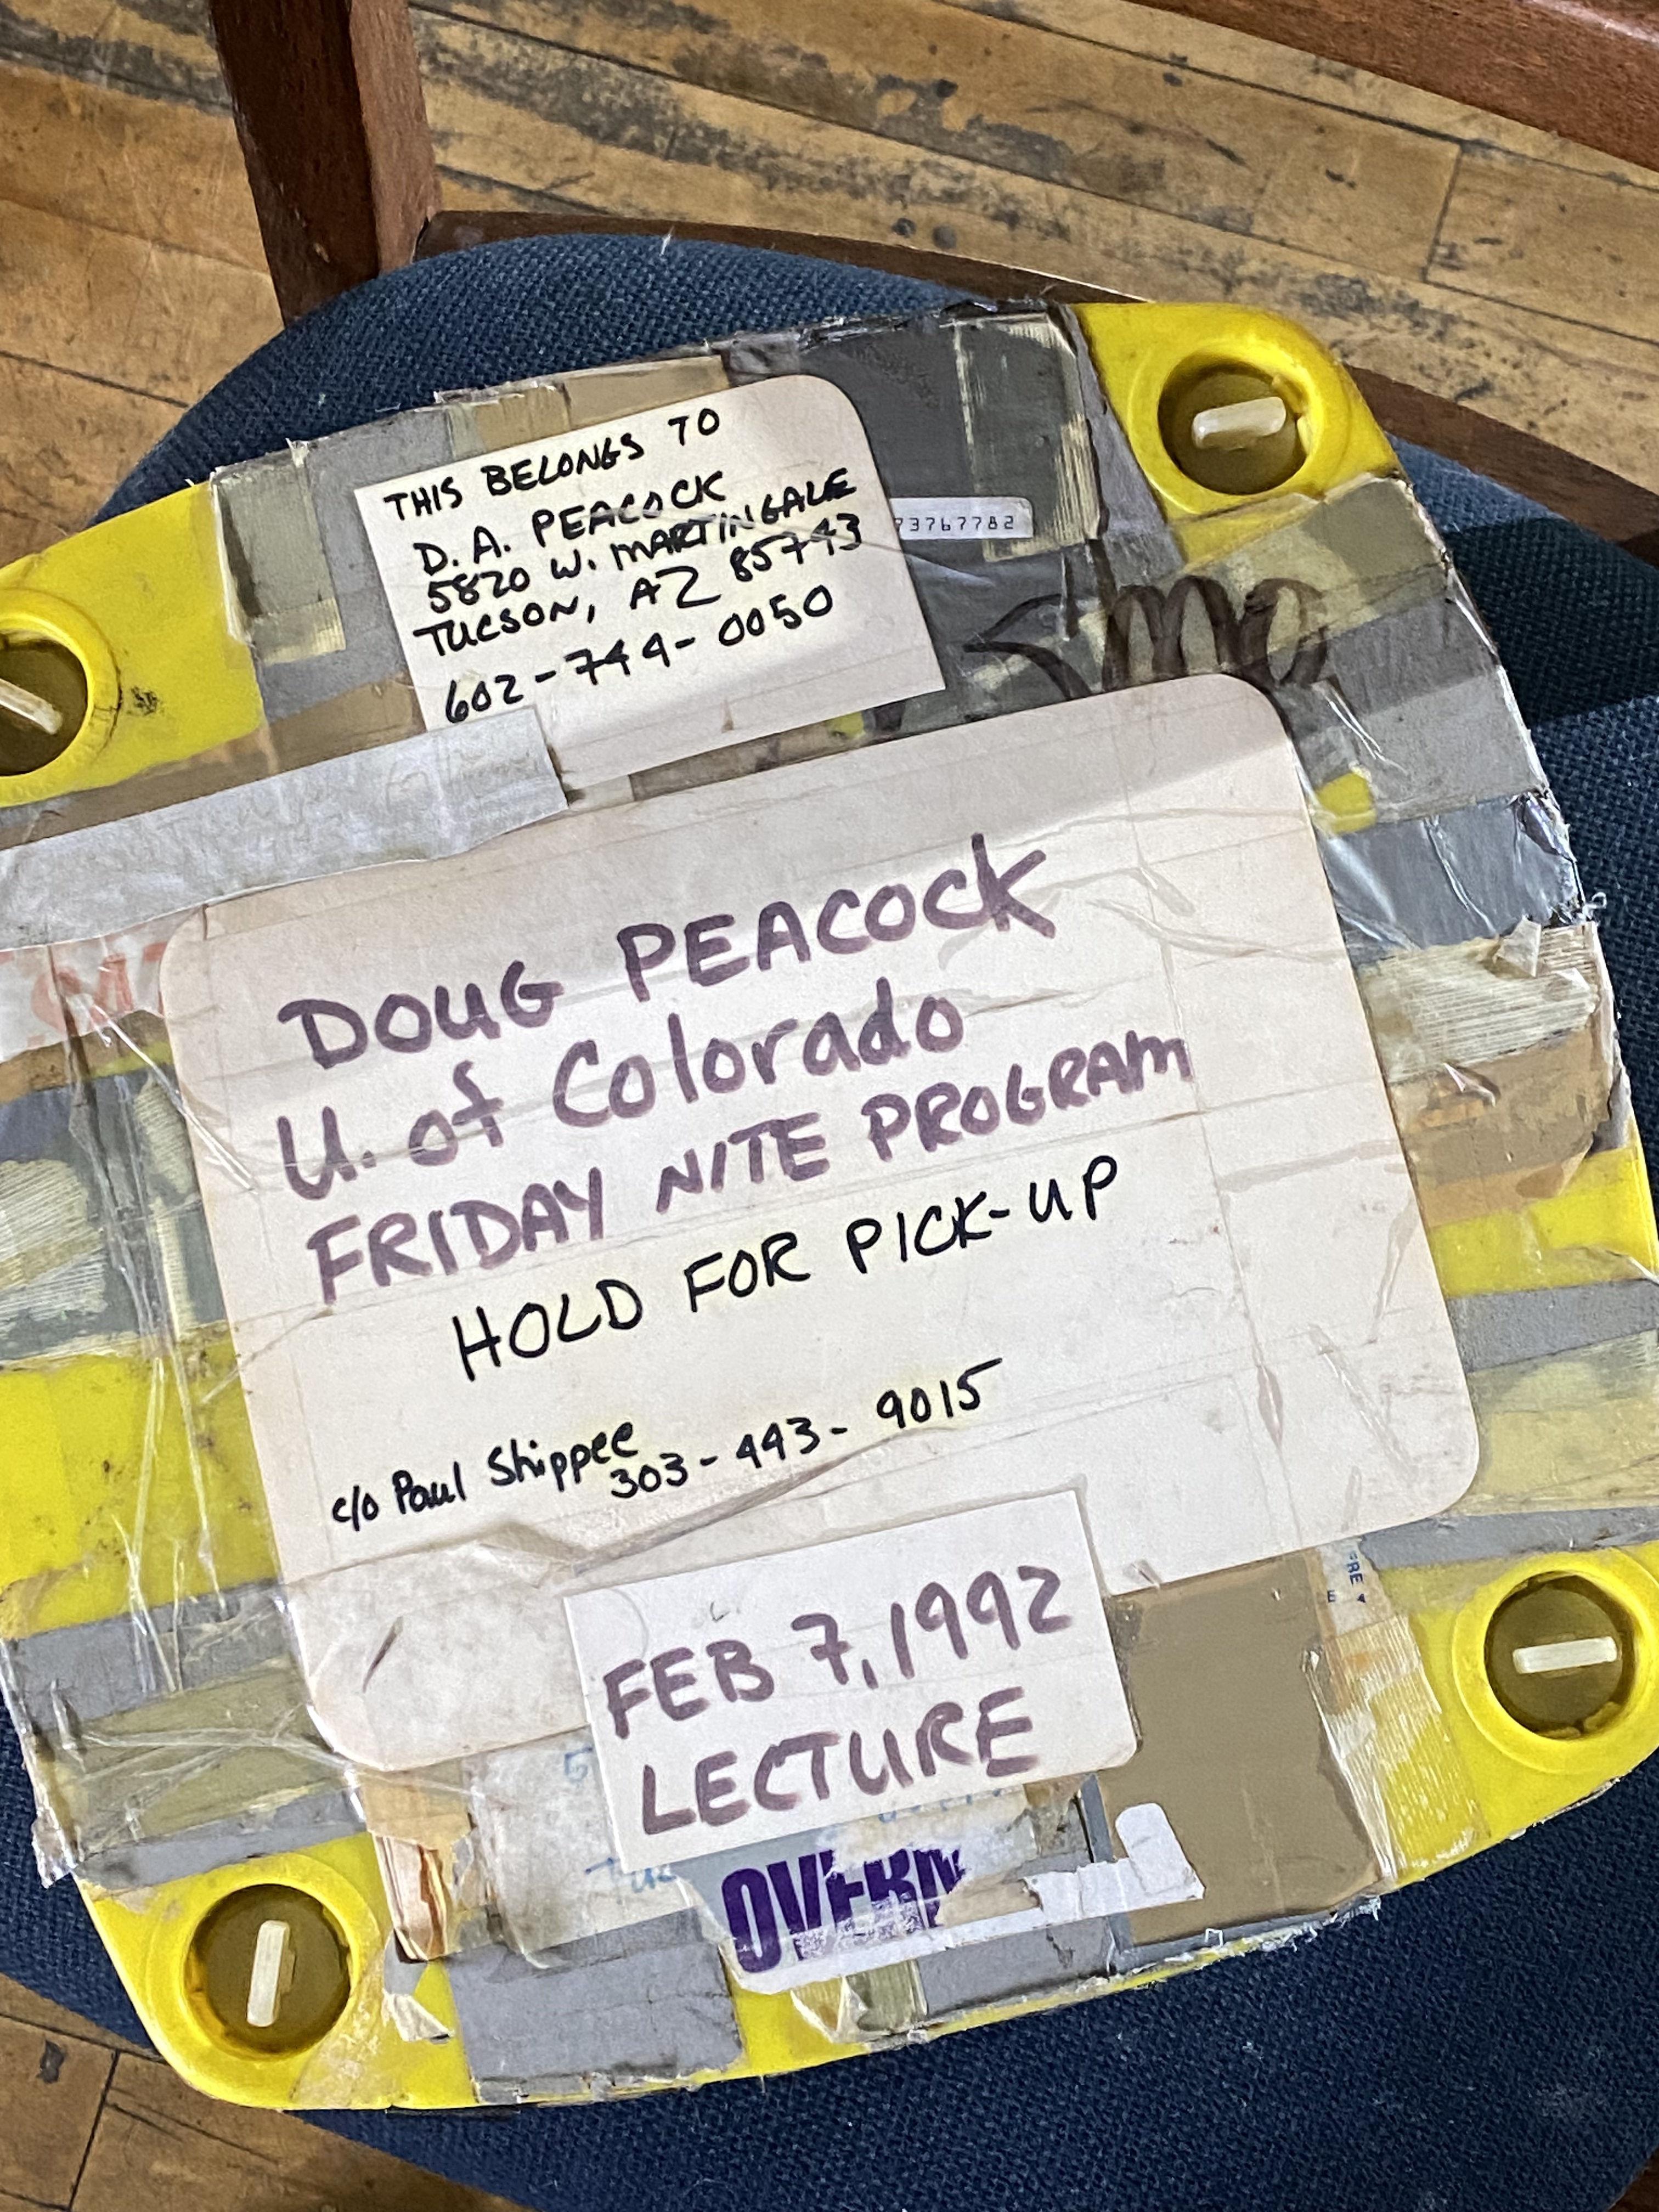 THIS BELONGS TO
D. A. PEACOCK
5820 W. MARTINGALE
TUCSON, AZ 85743
602-744-0050
73767782
DOUG PEACOCK
U. of Colorado
FRIDAY NITE PROGRAM
HOLD FOR PICK-UP
c/o Paul Shippee
303-443-9015
FEB 7, 1992
LECTURE
OVERN